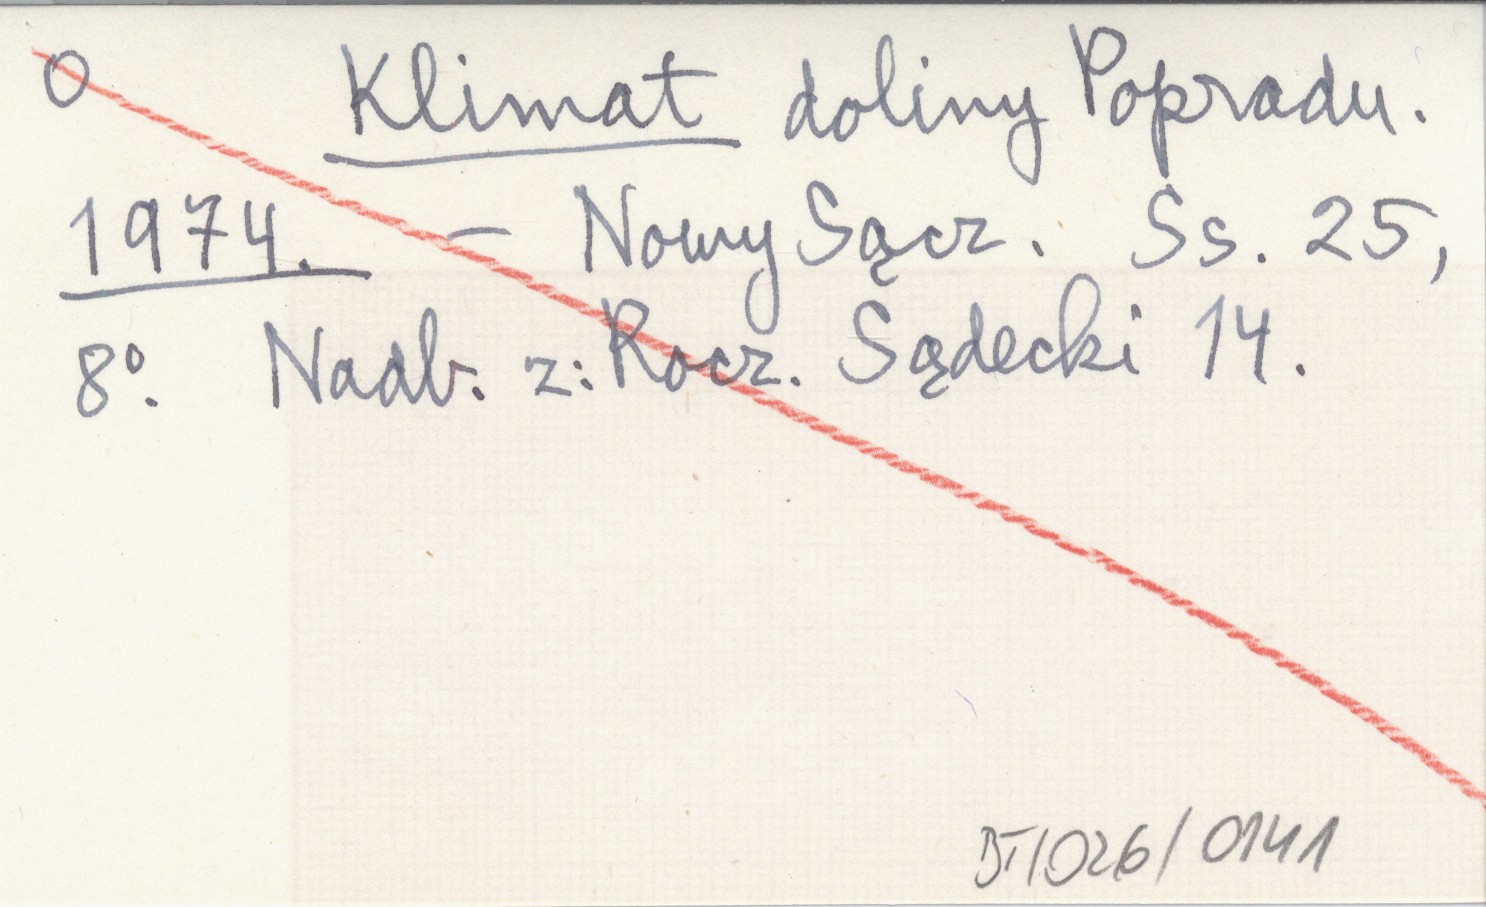 O Klimat doliny Popradu.
1974. - Nowy Sącz. Ss. 25,
8º. Nadb. z: Rocz. Sądecki 14.
BT/026/0141